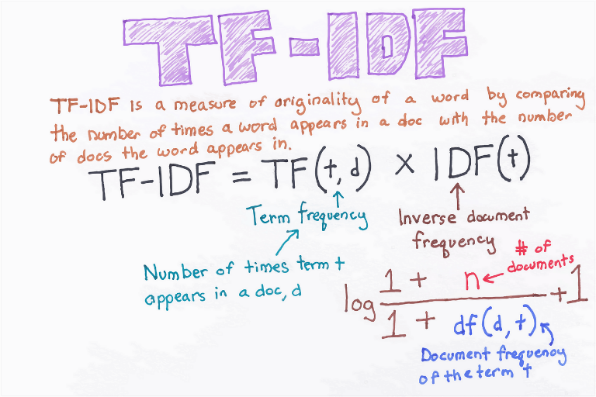 TF-IDF
TF-IDF Is a measure of originality of a word by comparing
the number of times a word appears in a doc with the number
of docs the word appears in.
TF-IDF = TF(t, d) × IDF(t)
Term frequency
Inverse document
frequency
Number of times term t
appears in a doc, d
# of
documents
log (1 + n) / (1 + df(d, t)) + 1
Document frequency
of the term t